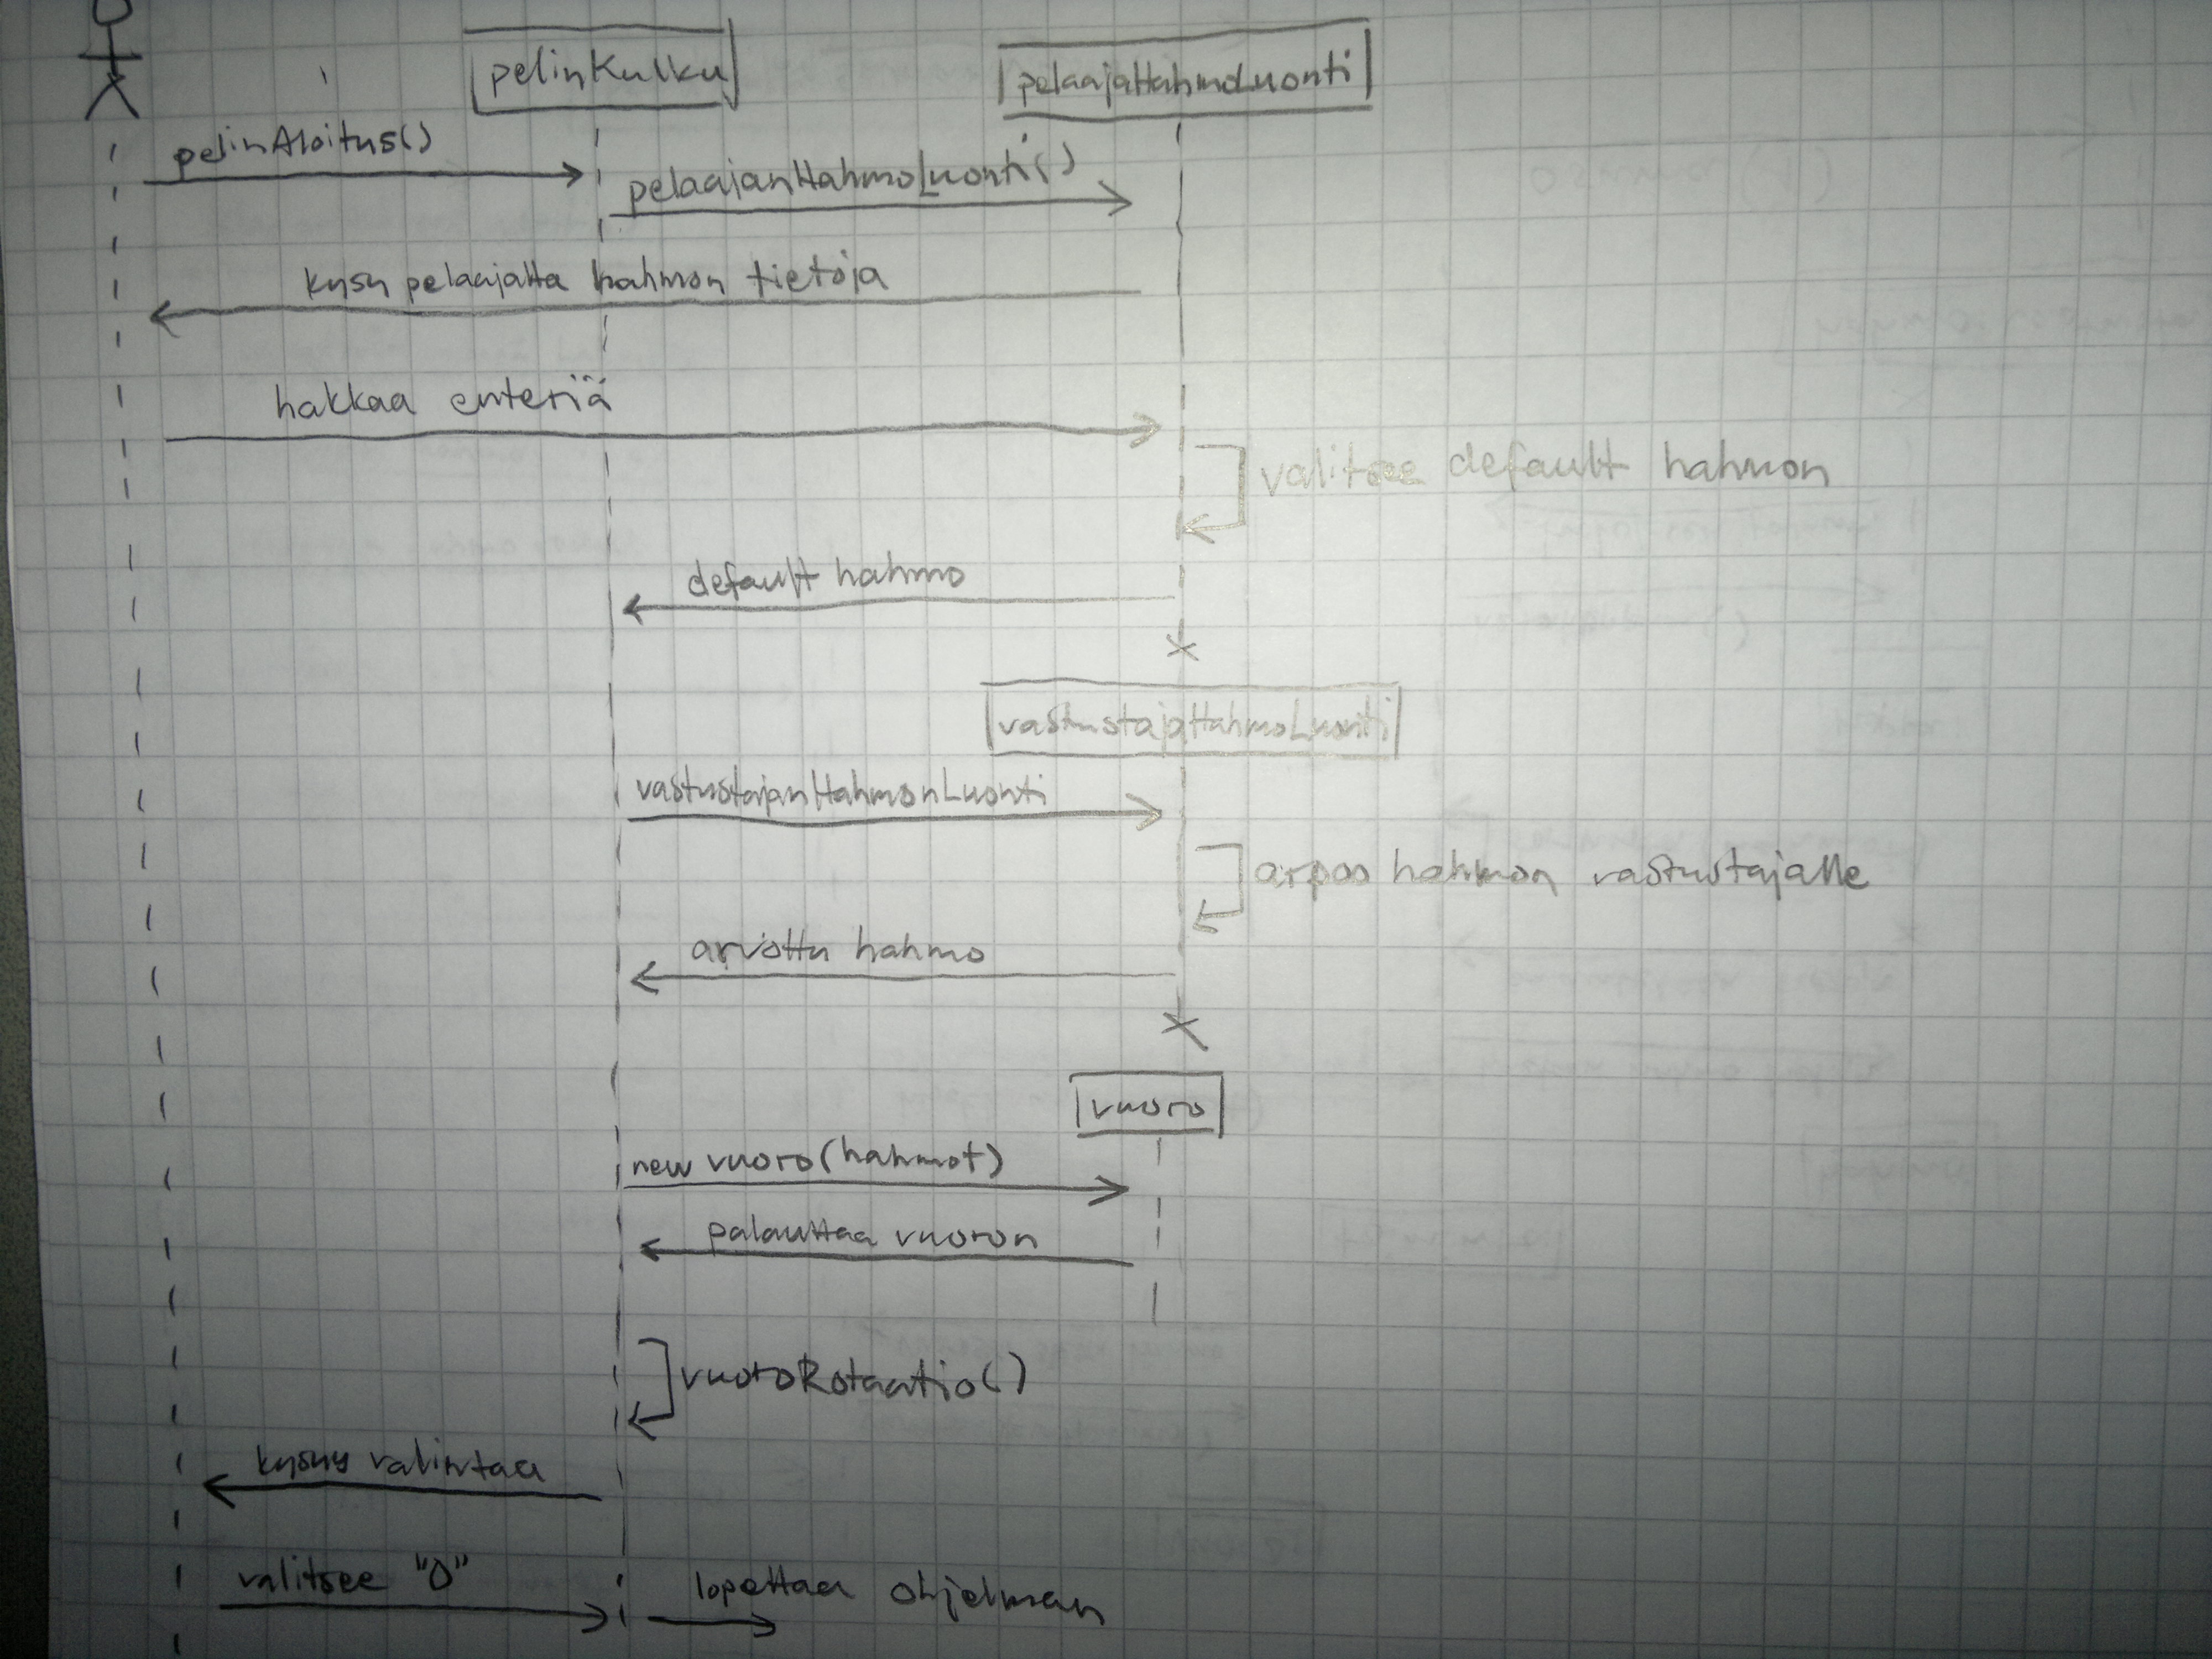 pelinKulku
pelaajaHahmoLuonti
pelinAloitus()
pelaajanHahmoLuonti()
kysy pelaajalta hahmon tietoja
hakkaa enteriä
valitsee default hahmon
default hahmo
vastustajaHahmoLuonti
vastustajanHahmonLuonti
arpoo hahmon vastustajalle
arvottu hahmo
vuoro
new vuoro(hahmot)
palauttaa vuoron
vuoroRotaatio()
kysyy valintaa
valitsee "0"
lopettaa ohjelman